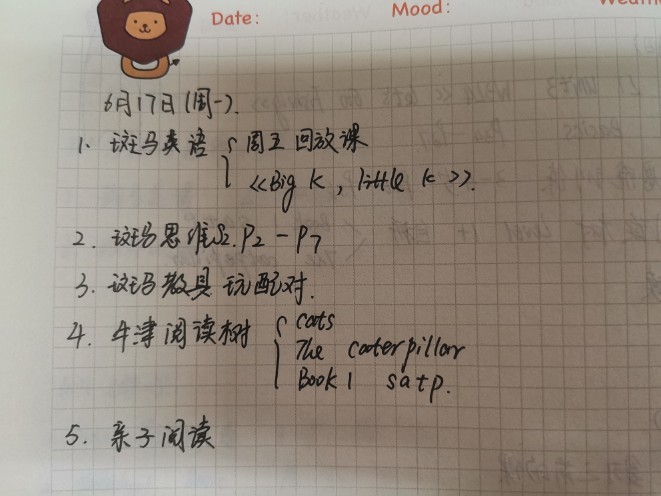 Date: Mood: Weather
6月17日(周一).
1. 斑马英语 { 周五回放课
<<Big k, little k>>.
2. 斑马思维S2.P2-P7
3. 斑马教具 玩配对.
4. 牛津阅读树 { cats
The caterpillar
Book 1 satp.
5. 亲子阅读